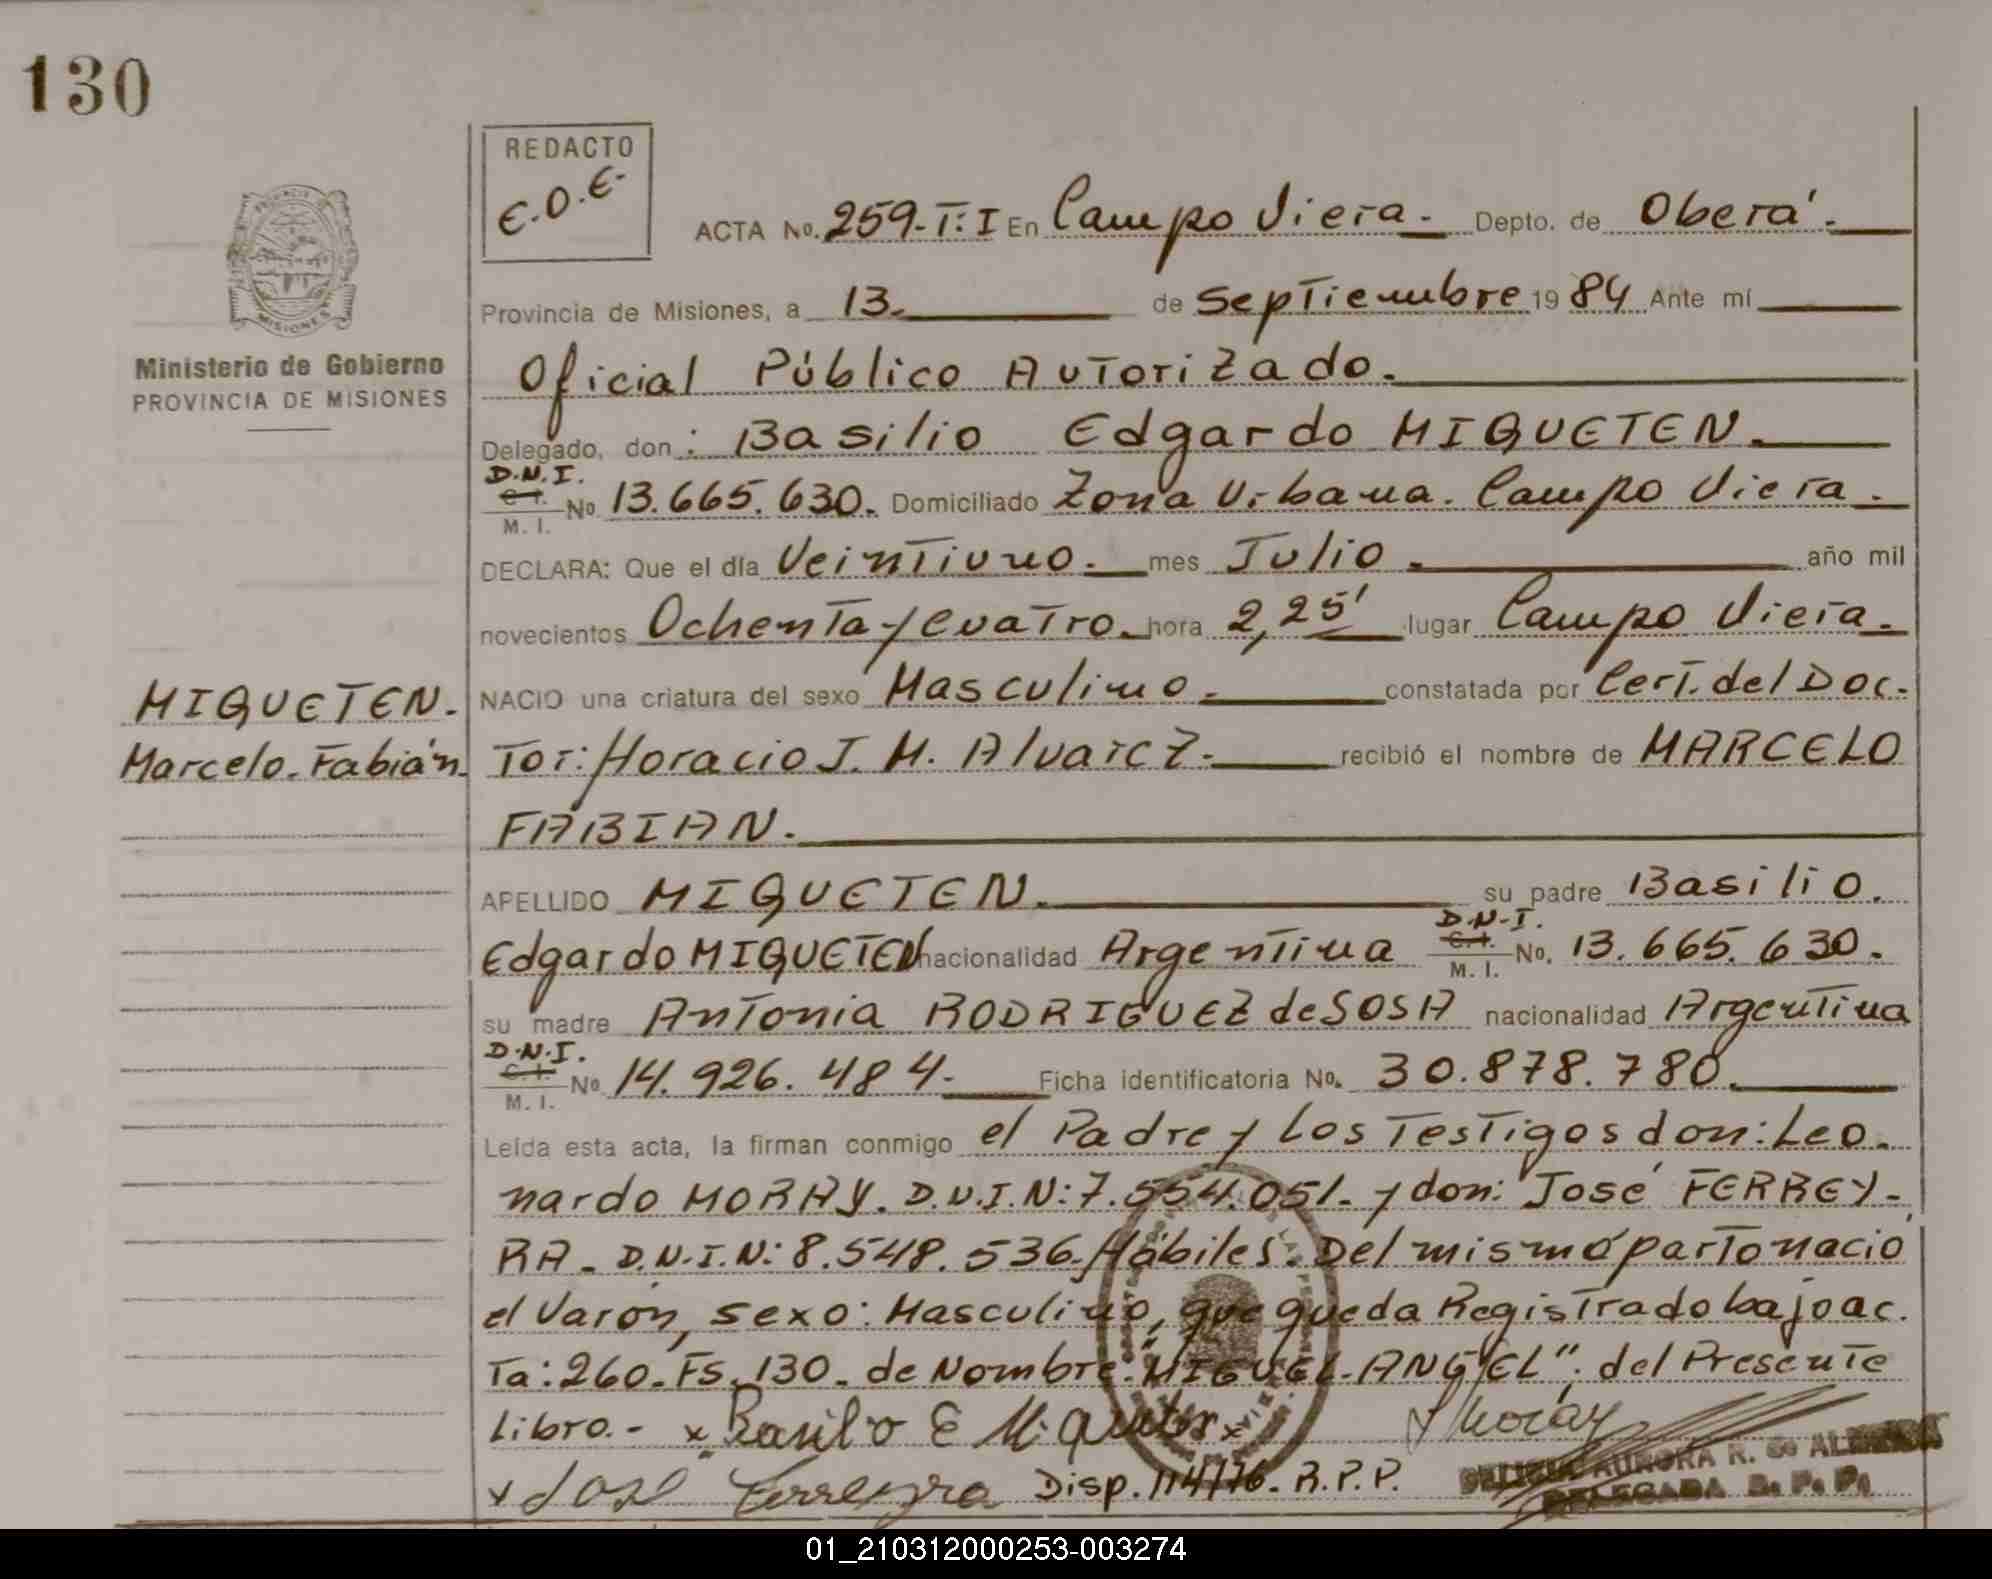 130
REDACTO
E.O.E-
PROVINCIA
MISIONES
Ministerio de Gobierno
PROVINCIA DE MISIONES
MIQUETEN.
Marcelo. Fabián.
ACTA No. 259-T: I En Campo Viera.- Depto. de Oberá.-
Provincia de Misiones, a 13. de Septiembre 19 84 Ante mí
Oficial Público Autorizado.
Delegado, don: Basilio Edgardo MIQUETEN.
D.N.I.
C. I.
M. I. No 13.665.630. Domiciliado Zona Urbana. Campo Viera.
DECLARA: Que el día Veintiuno. mes Julio. año mil
novecientos Ochenta y Cuatro. hora 2,25' lugar Campo Viera.
NACIO una criatura del sexo Masculino. constatada por Cert. del Doc-
Tor: Horacio J. M. Alvarez. recibió el nombre de MARCELO
FABIAN.
APELLIDO MIQUETEN. su padre Basilio.
Edgardo MIQUETEN nacionalidad Argentina D.N.I. C.I. M. I. No. 13.665.630.
su madre Antonia RODRIGUEZ de SOSA nacionalidad Argentina
D.N.I.
C. I.
M. I. No 14.926.484. Ficha identificatoria No. 30.878.780.
Leída esta acta, la firman conmigo el Padre y Los Testigos don: Leo-
nardo MORAY. D.N.I.N: 7.554.051. y don: José FERREY-
RA. D.N.I.N: 8.548.536. Hábiles. Del mismo parto nació
el Varón, sexo: Masculino, que queda Registrado bajo ac-
Ta: 260. FS. 130. de Nombre: "MIGUEL-ANGEL"; del Presente
Libro.- x Basilio E Miqueten x Moray
x José Ferreyra Disp. 114/76. R.P.P.
AURORA R. de
DELEGADA R. P. P.
01_210312000253-003274